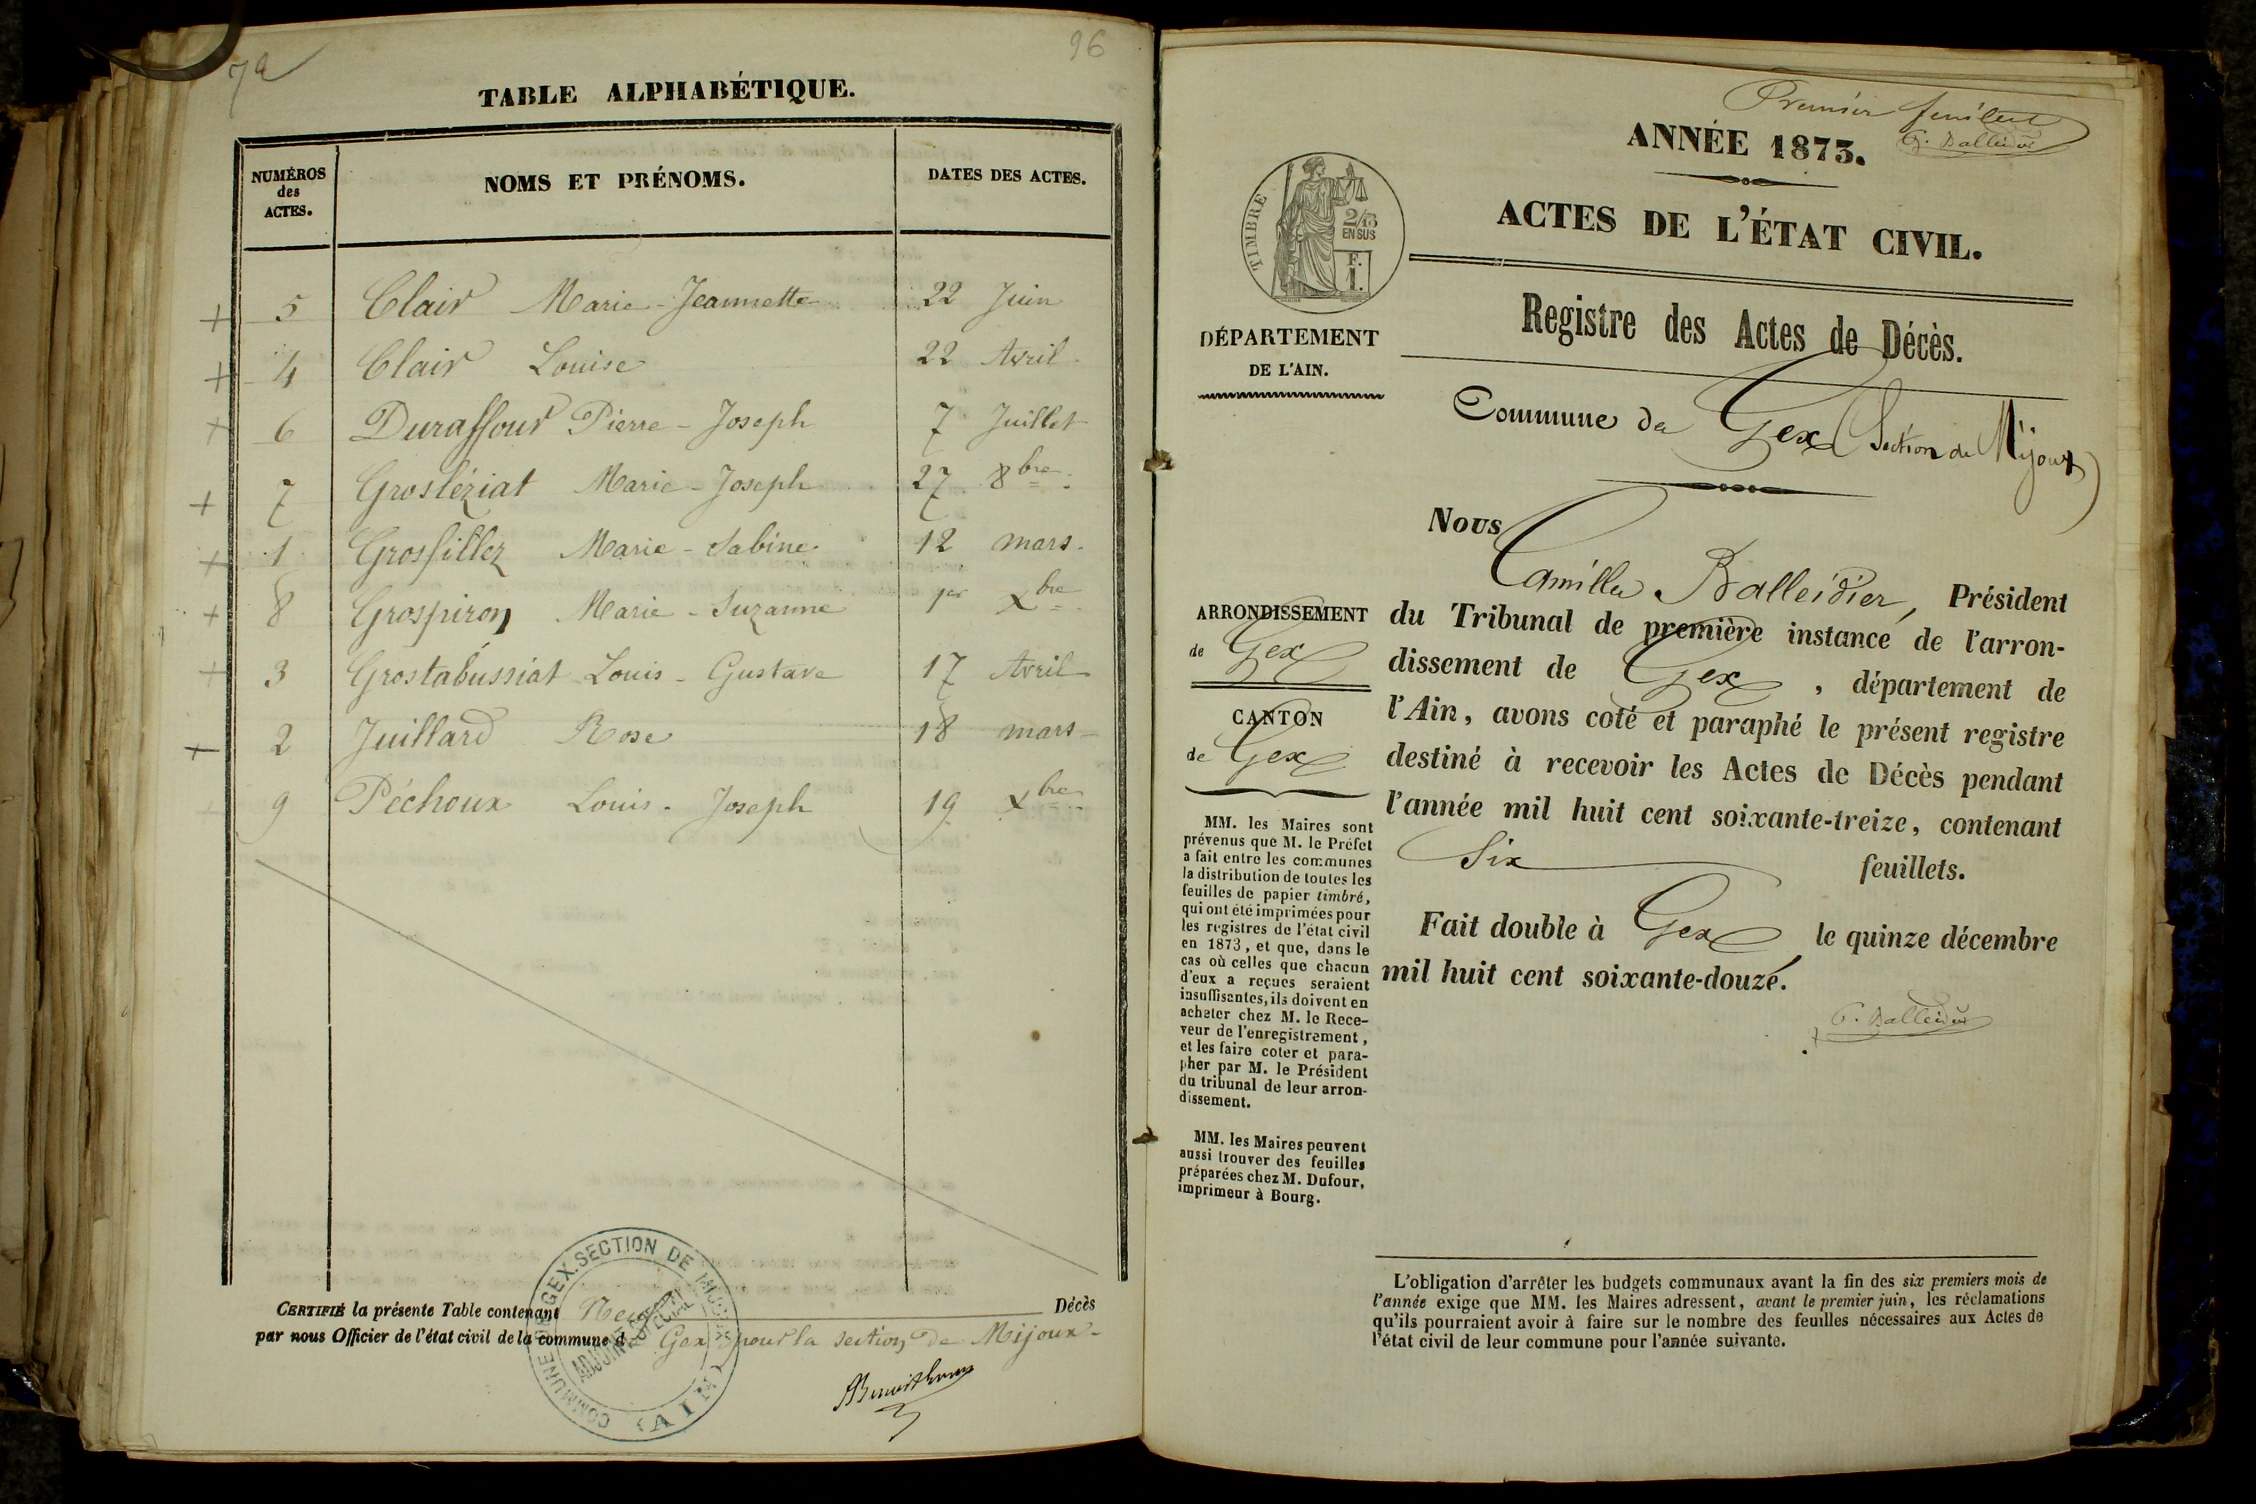 72
96
TABLE ALPHABÉTIQUE.
NUMÉROS des ACTES.
NOMS ET PRÉNOMS.
DATES DES ACTES.
+ 5 Clair Marie-Jeannette 22 Juin
+ 4 Clair Louise 22 Avril
+ 6 Duraffour Pierre-Joseph 7 Juillet
+ 7 Groslériat Marie-Joseph 27 8bre
+ 1 Grosfillez Marie-Sabine 12 mars.
+ 8 Grospiron Marie-Suzanne 1er Xbre
+ 3 Grostabussiat Louis-Gustave 17 Avril
+ 2 Juillard Rose 18 mars
+ 9 Péchoux Louis-Joseph 19 Xbre
CERTIFIÉ la présente Table contenant Neuf Décès
par nous Officier de l'état civil de la commune d Gex pour la section de Mijoux
COMMUNE DE GEX. SECTION DE MIJOUX (AIN)
ADJOINT SPÉCIAL
Premier feuillet
C. Balleidier
ANNÉE 1873.
ACTES DE L'ÉTAT CIVIL.
TIMBRE
2/10
EN SUS
F.
1.
Registre des Actes de Décès.
DÉPARTEMENT
DE L'AIN.
Commune de Gex (Section de Mijoux)
ARRONDISSEMENT
de Gex
CANTON
de Gex
MM. les Maires sont
prévenus que M. le Préfet
a fait entre les communes
la distribution de toutes les
feuilles de papier timbré,
qui ont été imprimées pour
les registres de l'état civil
en 1873, et que, dans le
cas où celles que chacun
d'eux a reçues seraient
insuffisantes, ils doivent en
acheter chez M. le Rece-
veur de l'enregistrement,
et les faire coter et para-
pher par M. le Président
du tribunal de leur arron-
dissement.
MM. les Maires peuvent
aussi trouver des feuilles
préparées chez M. Dufour,
imprimeur à Bourg.
Nous Camille Balleidier, Président
du Tribunal de première instance de l'arron-
dissement de Gex, département de
l'Ain, avons coté et paraphé le présent registre
destiné à recevoir les Actes de Décès pendant
l'année mil huit cent soixante-treize, contenant
Six feuillets.
Fait double à Gex le quinze décembre
mil huit cent soixante-douze.
C. Balleidier
L'obligation d'arrêter les budgets communaux avant la fin des six premiers mois de
l'année exige que MM. les Maires adressent, avant le premier juin, les réclamations
qu'ils pourraient avoir à faire sur le nombre des feuilles nécessaires aux Actes de
l'état civil de leur commune pour l'année suivante.